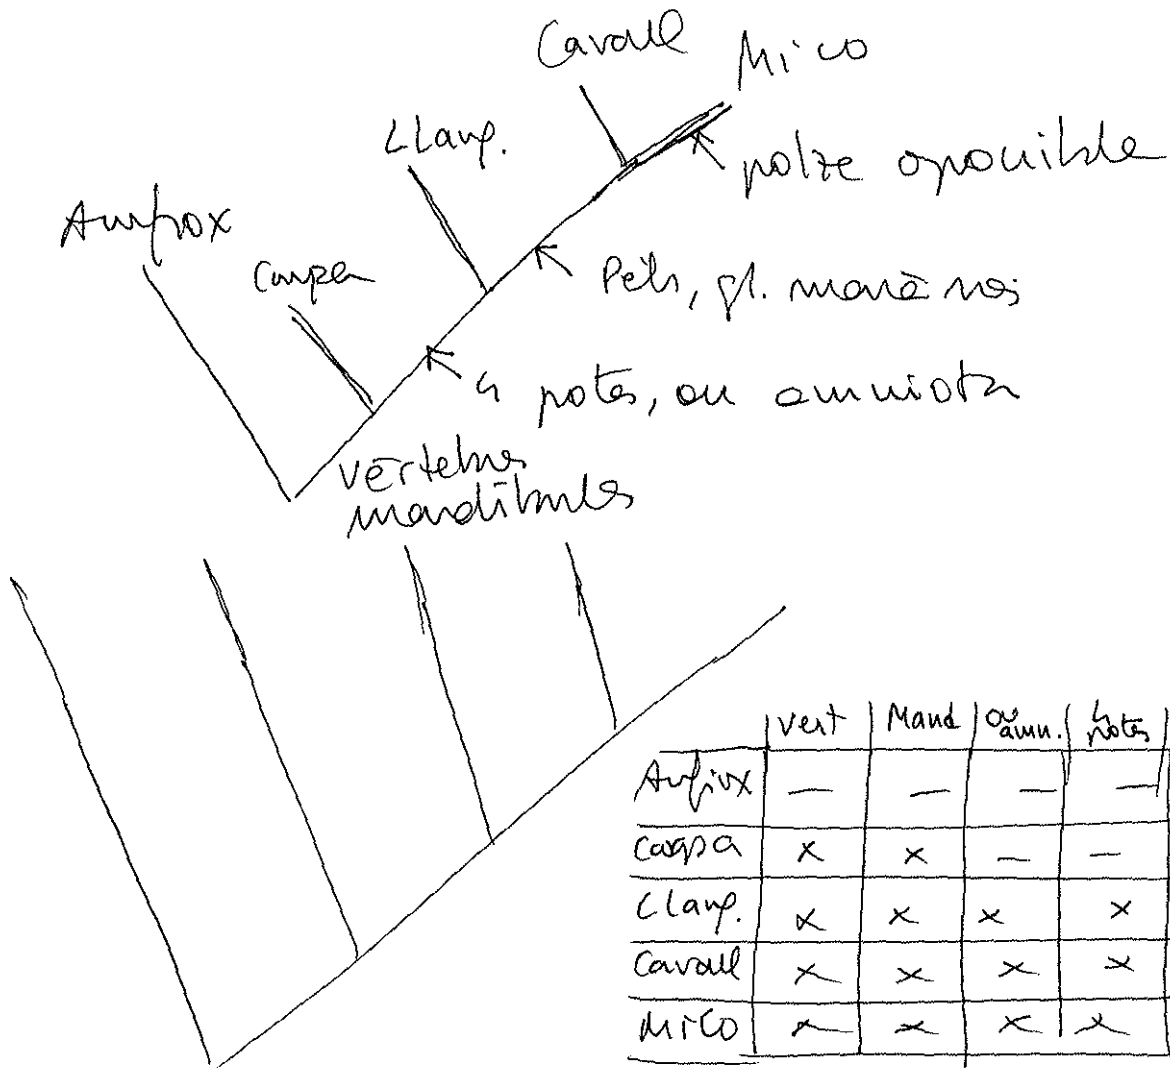 Cavall
Mico
Llang.
Amfiox
Carpa
polze oponible
Pèls, gl. mamàries
4 potes, ou amniota
Vèrtebres
mandíbules
Vert | Mand | ou amn. | 4 potes
Amfiox | — | — | — | —
Carpa | x | x | — | —
Llang. | x | x | x | x
Cavall | x | x | x | x
Mico | x | x | x | x